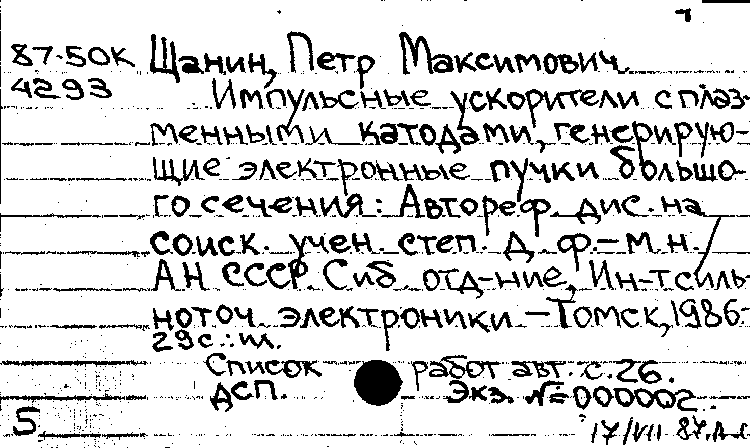 87-50К Щанин, Петр Максимович.
4293 Импульсные ускорители с плаз-
менными катодами, генерирую-
щие электронные пучки большо-
го сечения: Автореф. дис. на
соиск. учен. степ. д. ф.-м.н. /
АН СССР. Сиб. отд-ние, Ин-т силь-
ноточ. электроники. - Томск, 1986.-
29 с.: ил.
Список работ авт. с. 26.
ДСП. Экз. № 000002.
5
17/VII 87.